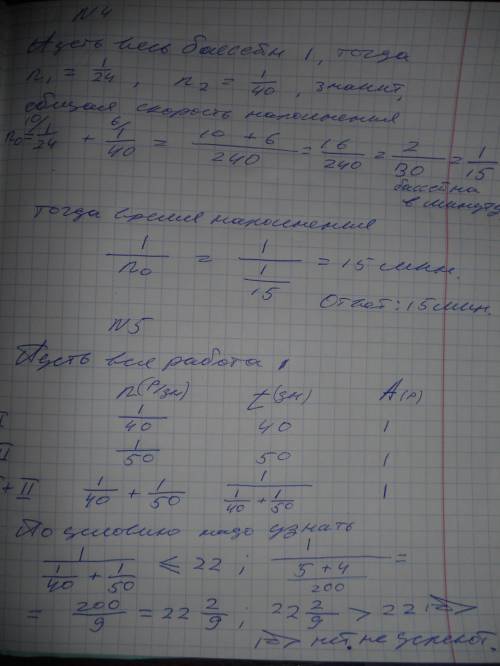 N4
Пусть весь бассейн 1, тогда
n₁ = 1/24 , n₂ = 1/40 , значит,
общая скорость наполнения
n₀ = 10/ 1/24 + 6/ 1/40 = (10 + 6)/240 = 16/240 = 2/30 = 1/15
бассейна
в минуту
тогда время наполнения
1/n₀ = 1/(1/15) = 15 мин.
Ответ: 15 мин.
N5
Пусть вся работа 1
n(р/дн) t(дн) A(р)
I 1/40 40 1
II 1/50 50 1
I+II 1/40 + 1/50 1/(1/40 + 1/50) 1
По условию надо узнать
1/(1/40 + 1/50) ≤ 22 ; 1/((5+4)/200) =
= 200/9 = 22 2/9 ; 22 2/9 > 22 =>
=> нет. не успеют.